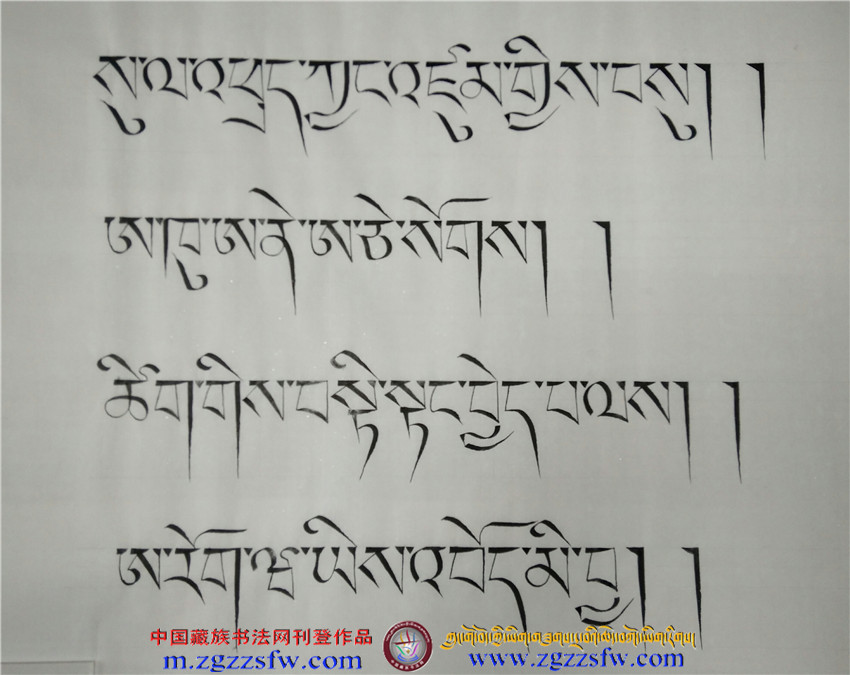 སུ་ལ་འཕྲད་ཀྱང་འཛུམ་གྱིས་བསུ། །
ཨ་ཁུ་ཨ་ནེ་ཨ་ཅེ་སོགས། །
ཚིག་གིས་བསྟི་སྟང་བྱེད་པ་ལས། །
ཨ་རོག་ཝ་ཡིས་འབོད་མི་བྱ། །
中国藏族书法网刊登作品
m.zgzzsfw.com www.zgzzsfw.com